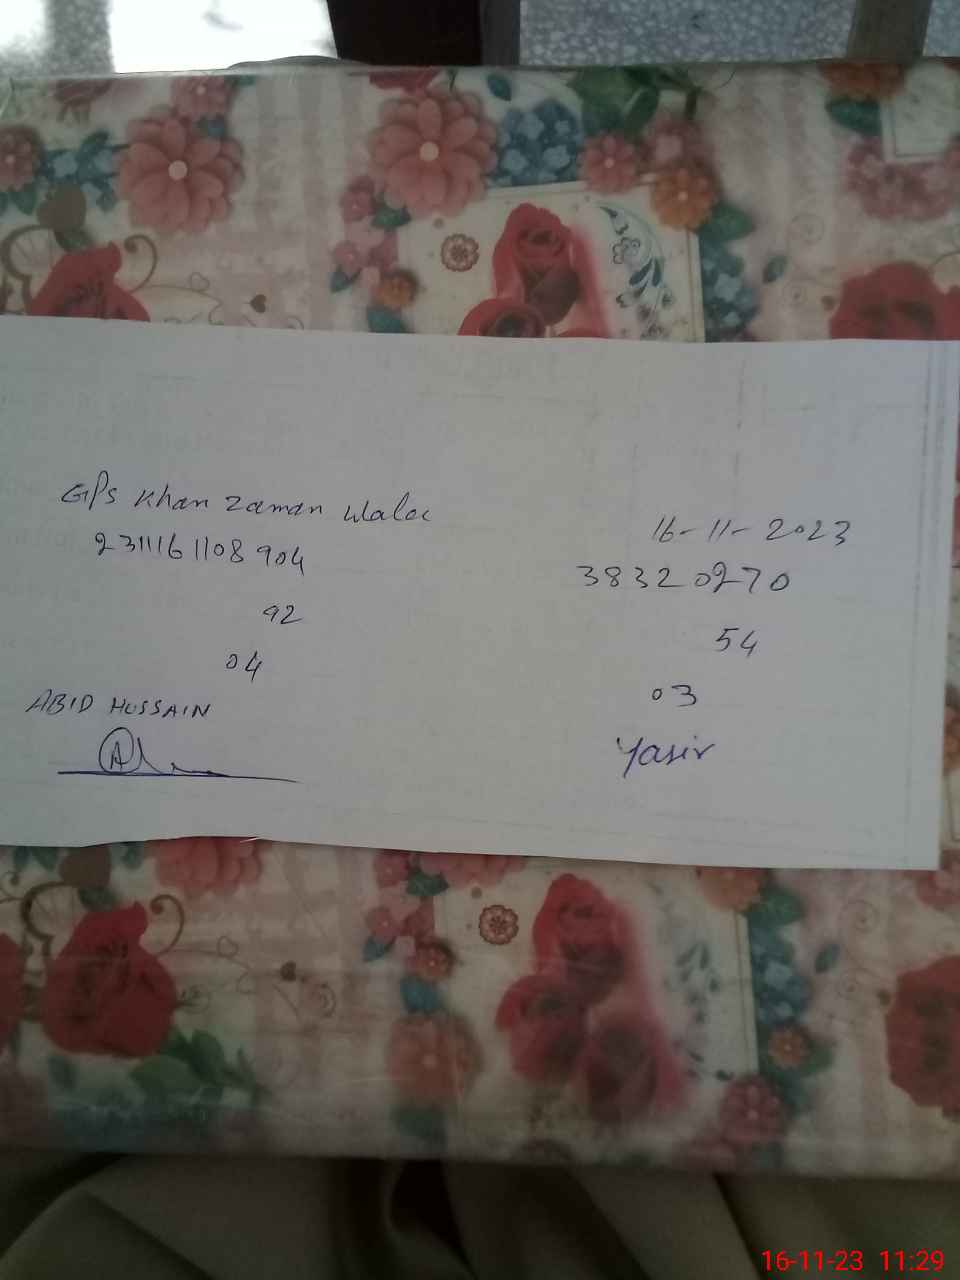 GPS Khan Zaman Wala
16-11-2023
231116 1108 904
38320270
92
54
04
03
ABID HUSSAIN
Yasir
16-11-23 11:29